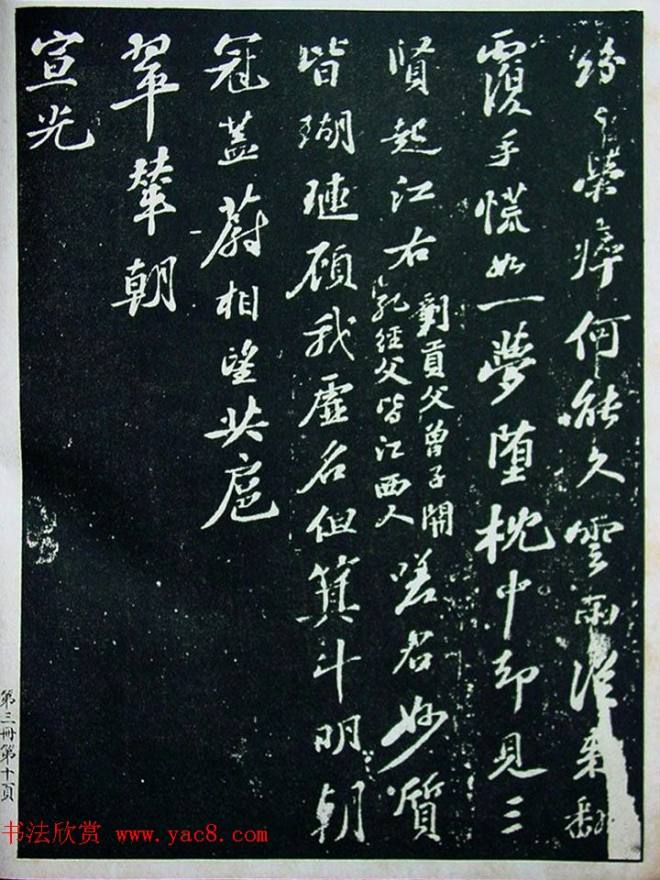 紛々榮瘁何能久雲雨從来翻
覆手慌如一夢墮枕中却見三
賢起江右
劉貢父曾子開
孔經父皆江西人
嗟君妙質
皆瑚璉顧我虛名但箕斗明朝
冠蓋蔚相望共扈
翠輦朝
宣光
第三冊第十頁
书法欣赏 www.yac8.com